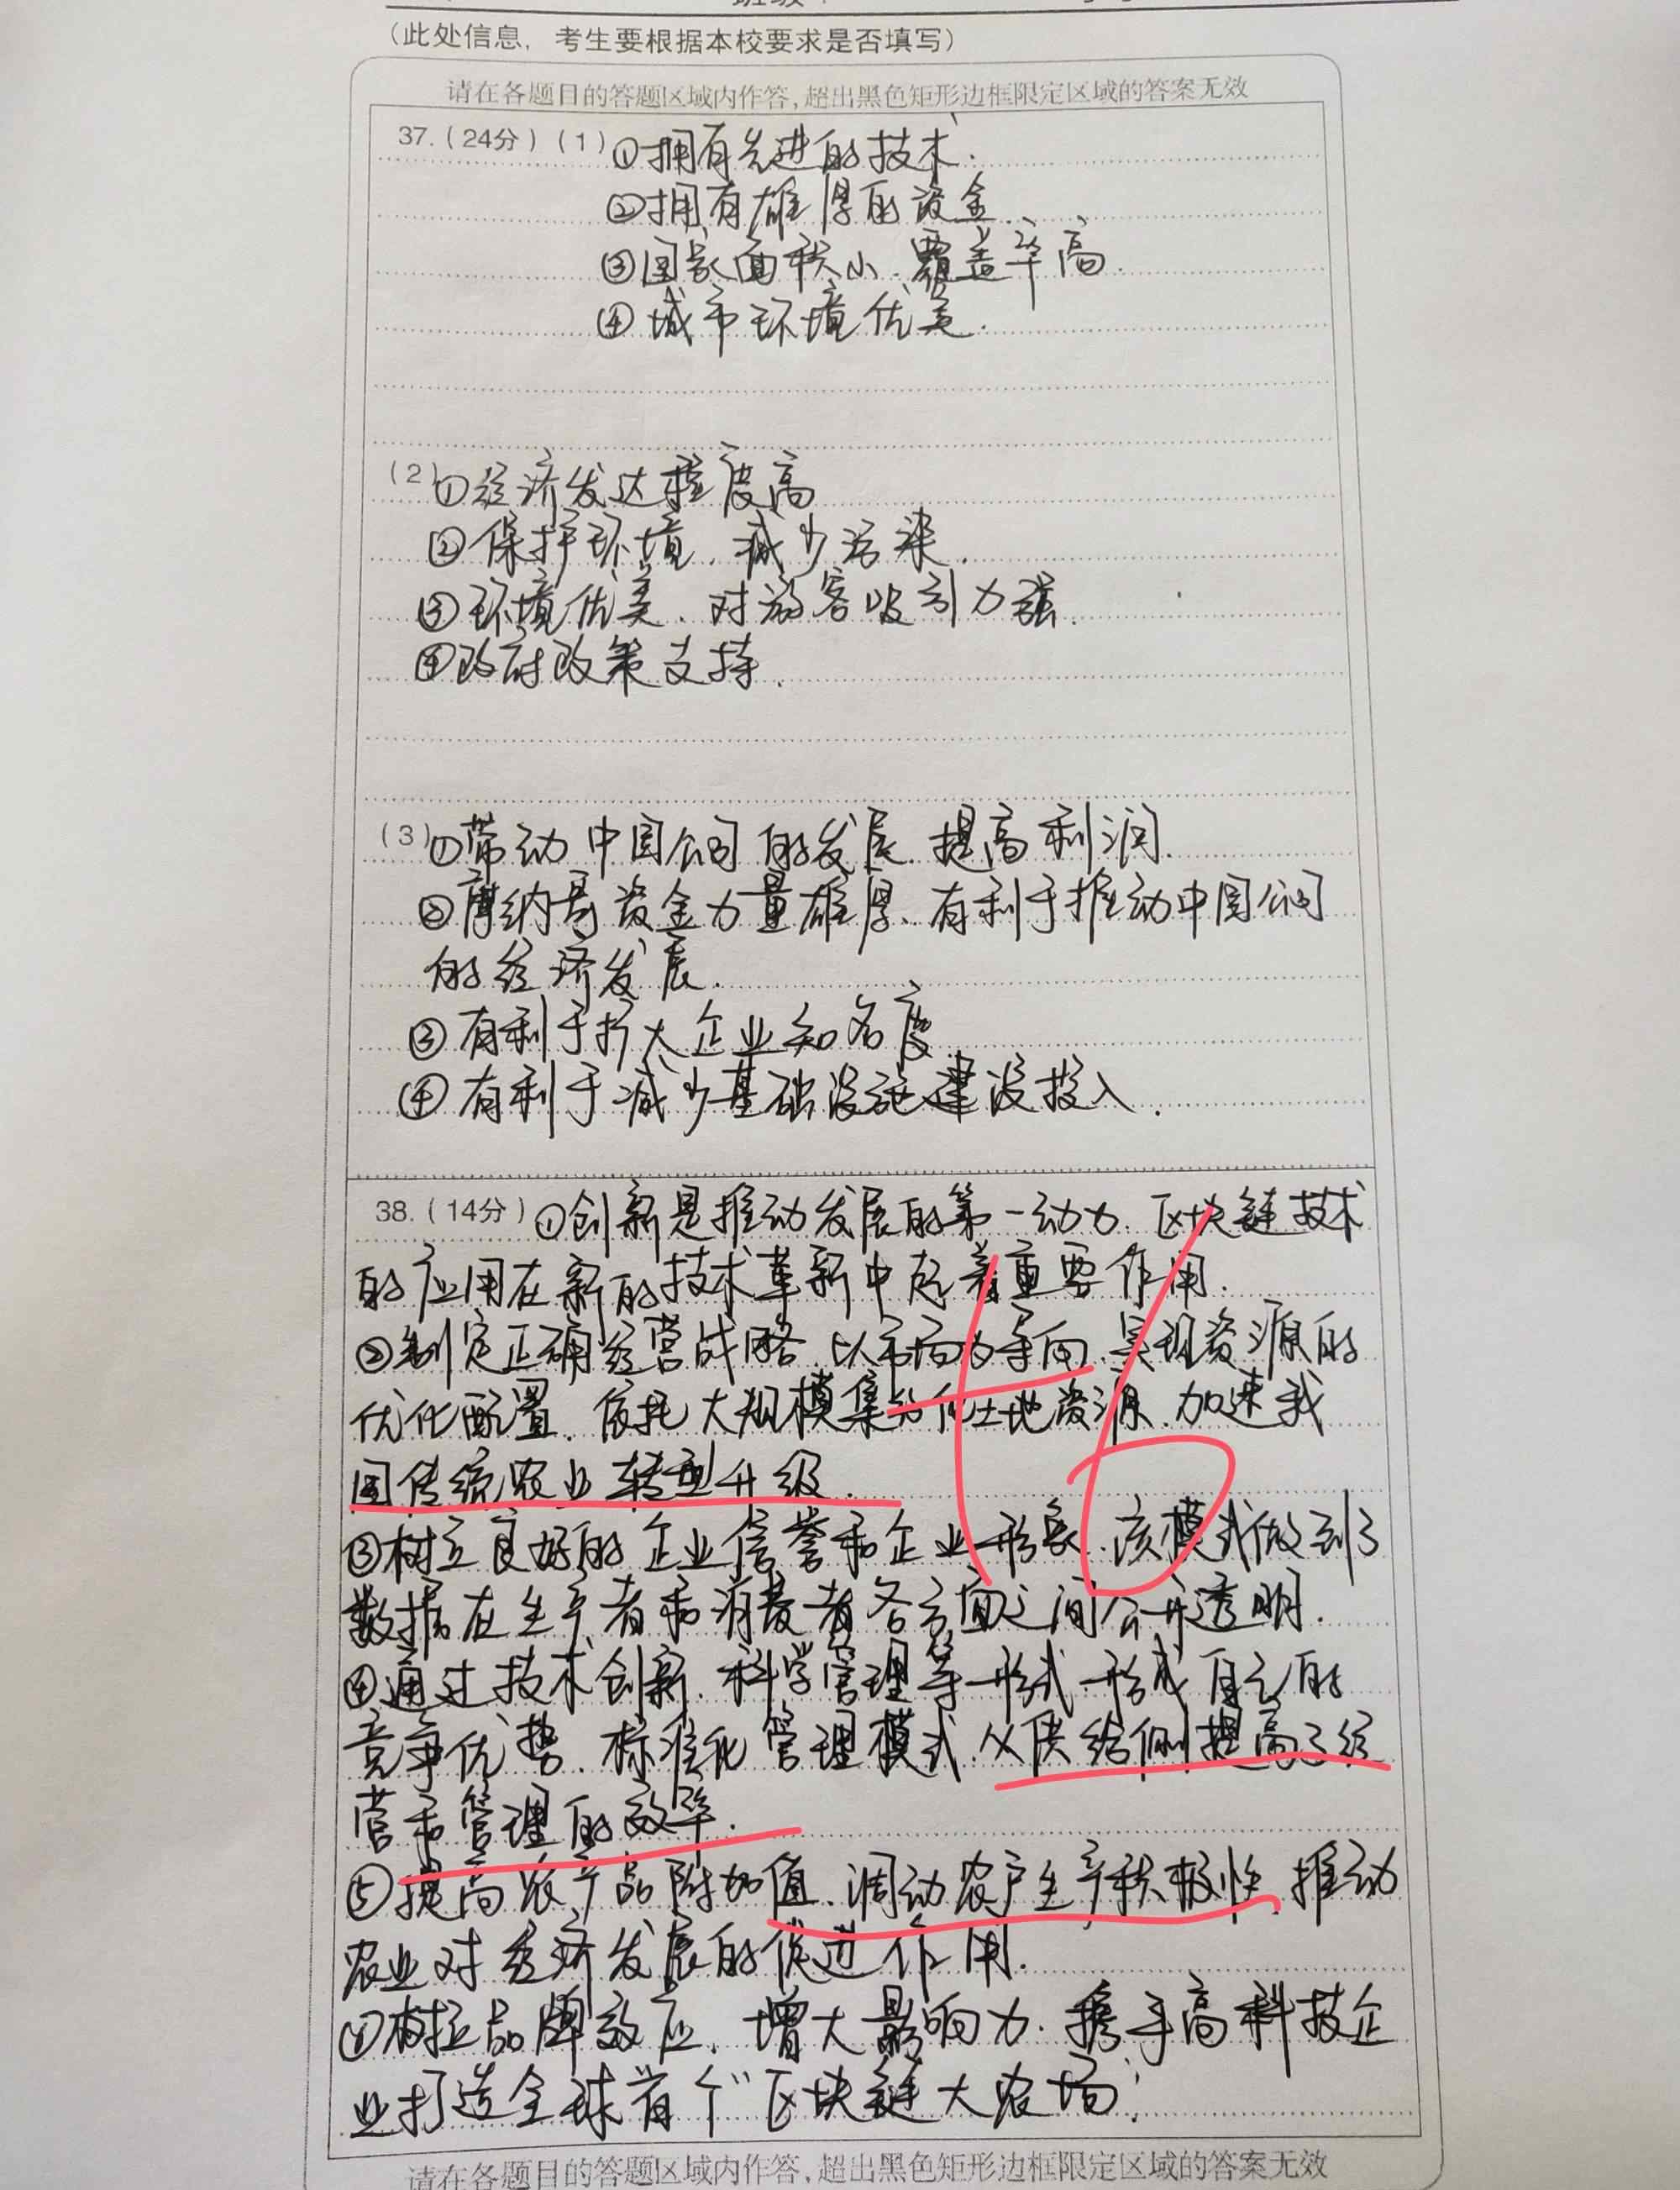 （此处信息，考生要根据本校要求是否填写）
请在各题目的答题区域内作答，超出黑色矩形边框限定区域的答案无效
37.（24分）（1）①拥有先进的技术.
②拥有雄厚的资金.
③国家面积小.覆盖率高.
④城市环境优美.
（2）①经济发达程度高
②保护环境.减少污染.
③环境优美.对游客吸引力强.
④政府政策支持.
（3）①带动中国公司的发展.提高利润.
②摩纳哥资金力量雄厚.有利于推动中国公司
的经济发展.
③有利于扩大企业知名度
④有利于减少基础设施建设投入.
38.（14分）①创新是推动发展的第一动力.区块链技术
的应用在新的技术革新中起着重要作用.
②制定正确经营战略.以市场为导向.实现资源的
优化配置.依托大规模集约化土地资源.加速我
国传统农业转型升级.
③树立良好的企业信誉和企业形象.该模式做到了
数据在生产者和消费者各方面之间公开透明.
④通过技术创新.科学管理等形式形成自己的
竞争优势.标准化管理模式.从供给侧提高了经
营和管理的效率.
⑤提高农产品附加值.调动农户生产积极性.推动
农业对经济发展的促进作用.
树立品牌效应.增大影响力.携手高科技企
业打造全球首个"区块链大农场"
请在各题目的答题区域内作答，超出黑色矩形边框限定区域的答案无效